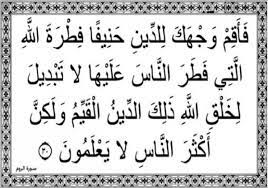 فَأَقِمْ وَجْهَكَ لِلدِّينِ حَنِيفًا فِطْرَةَ اللَّهِ
الَّتِي فَطَرَ النَّاسَ عَلَيْهَا لَا تَبْدِيلَ
لِخَلْقِ اللَّهِ ذَلِكَ الدِّينُ الْقَيِّمُ وَلَكِنَّ
أَكْثَرَ النَّاسِ لَا يَعْلَمُونَ ٣٠
سورة الروم